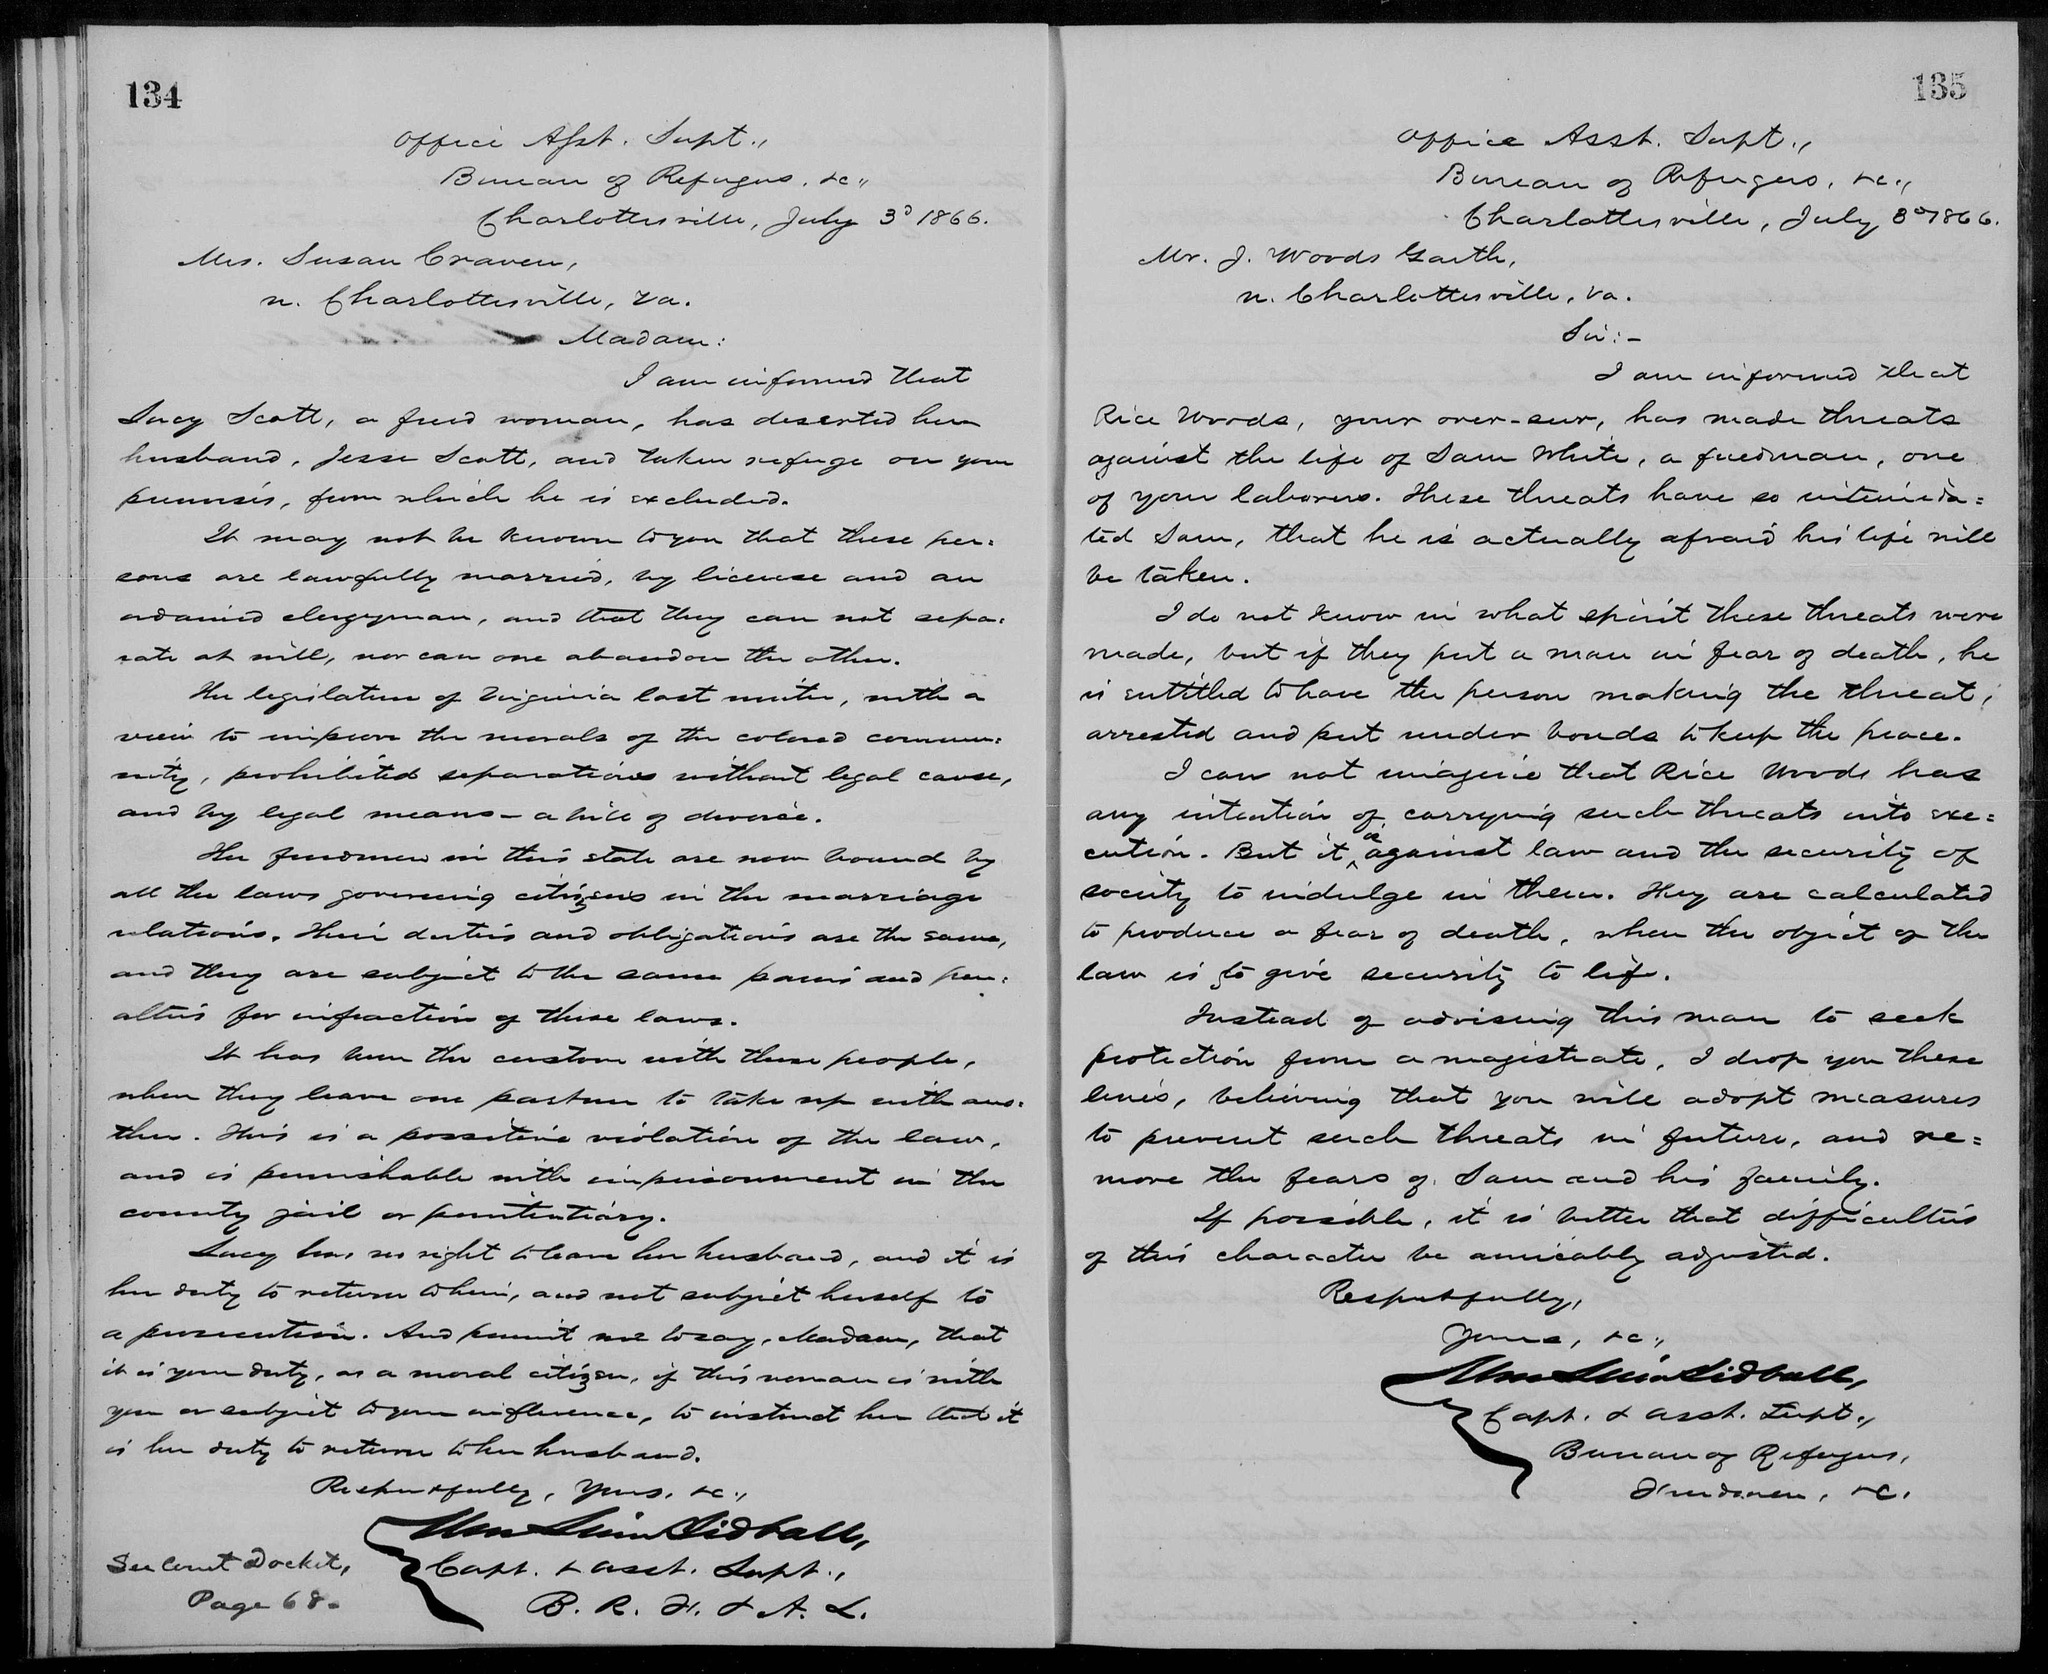 134
Office Asst. Supt.,
Bureau of Refugees, &c.,
Charlottesville, July 3d 1866.
Mrs. Susan Craven,
n. Charlottesville, Va.
Madam:
I am informed that
Lucy Scott, a freed woman, has deserted her
husband, Jesse Scott, and taken refuge on your
premises, from which he is excluded.
It may not be known to you that these per=
sons are lawfully married, by license and an
ordained clergyman, and that they can not sepa=
rate at will, nor can one abandon the other.
The legislature of Virginia last winter, with a
view to improve the morals of the colored commu=
nity, prohibited separations without legal cause,
and by legal means - a bill of divorce.
The freedmen in this state are now bound by
all the laws governing citizens in the marriage
relations. Their duties and obligations are the same,
and they are subject to the same pains and pen=
alties for infraction of those laws.
It has been the custom with these people,
when they leave one partner to take up with ano=
ther. This is a possitive violation of the law,
and is punishable with imprisonment in the
county jail or penitentiary.
Lucy has no right to leave her husband, and it is
her duty to return to him, and not subject herself to
a prosecution. And permit me to say, Madam, that
it is your duty, as a moral citizen, if this woman is with
you or subject to your influence, to instruct her that it
is her duty to return to her husband.
Respectfully, Yours, &c.,
Wm Luis Tidball,
Capt. & Asst. Supt.,
B. R. F. & A. L.
See Court Docket,
Page 68.
135
Office Asst. Supt.,
Bureau of Refugees, &c.,
Charlottesville, July 3d 1866.
Mr. J. Woods Garth,
n. Charlottesville, Va.
Sir:-
I am informed that
Rice Woods, your over-seer, has made threats
against the life of Sam White, a freedman, one
of your laborers. These threats have so intimida=
ted Sam, that he is actually afraid his life will
be taken.
I do not know in what spirit these threats were
made, but if they put a man in fear of death, he
is entitled to have the person making the threat,
arrested and put under bonds to keep the peace.
I can not imagine that Rice Woods has
any intention of carrying such threats into exe=
cution. But it is against law and the security of
society to indulge in them. They are calculated
to produce a fear of death, when the object of the
law is to give security to life.
Instead of advising this man to seek
protection from a magistrate, I drop you these
lines, believing that you will adopt measures
to prevent such threats in future, and re=
move the fears of Sam and his family.
If possible, it is better that difficulties
of this character be amicably adjusted.
Respectfully,
Yours, &c.,
Wm Luis Tidball,
Capt. & Asst. Supt.,
Bureau of Refugees,
Freedmen, &c.